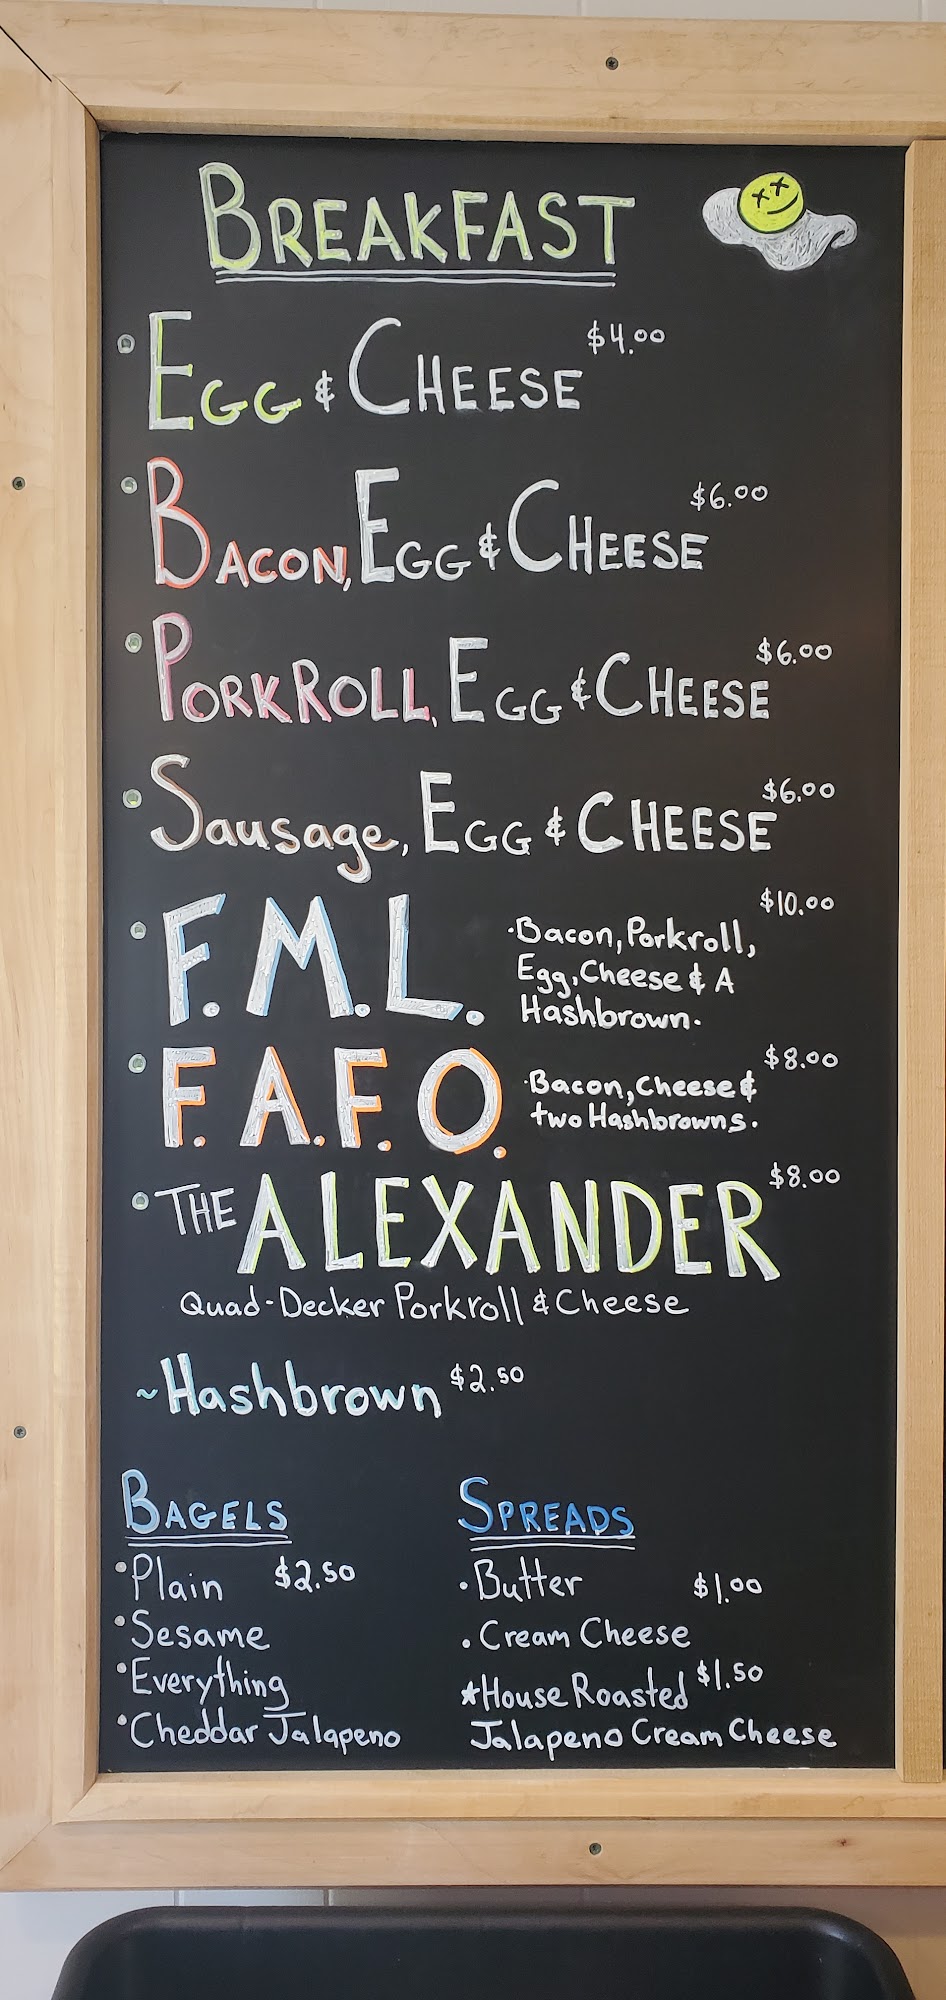 BREAKFAST
• EGG & CHEESE $4.00
• BACON, EGG & CHEESE $6.00
• PORKROLL, EGG & CHEESE $6.00
• Sausage, EGG & CHEESE $6.00
• F.M.L. $10.00
·Bacon, Porkroll,
Egg, Cheese & A
Hashbrown.
• F.A.F.O. $8.00
·Bacon, Cheese &
two Hashbrowns.
• THE ALEXANDER $8.00
Quad-Decker Porkroll & Cheese
~Hashbrown $2.50
BAGELS
•Plain $2.50
•Sesame
•Everything
•Cheddar Jalapeno
SPREADS
•Butter $1.00
•Cream Cheese
★House Roasted $1.50
Jalapeno Cream Cheese